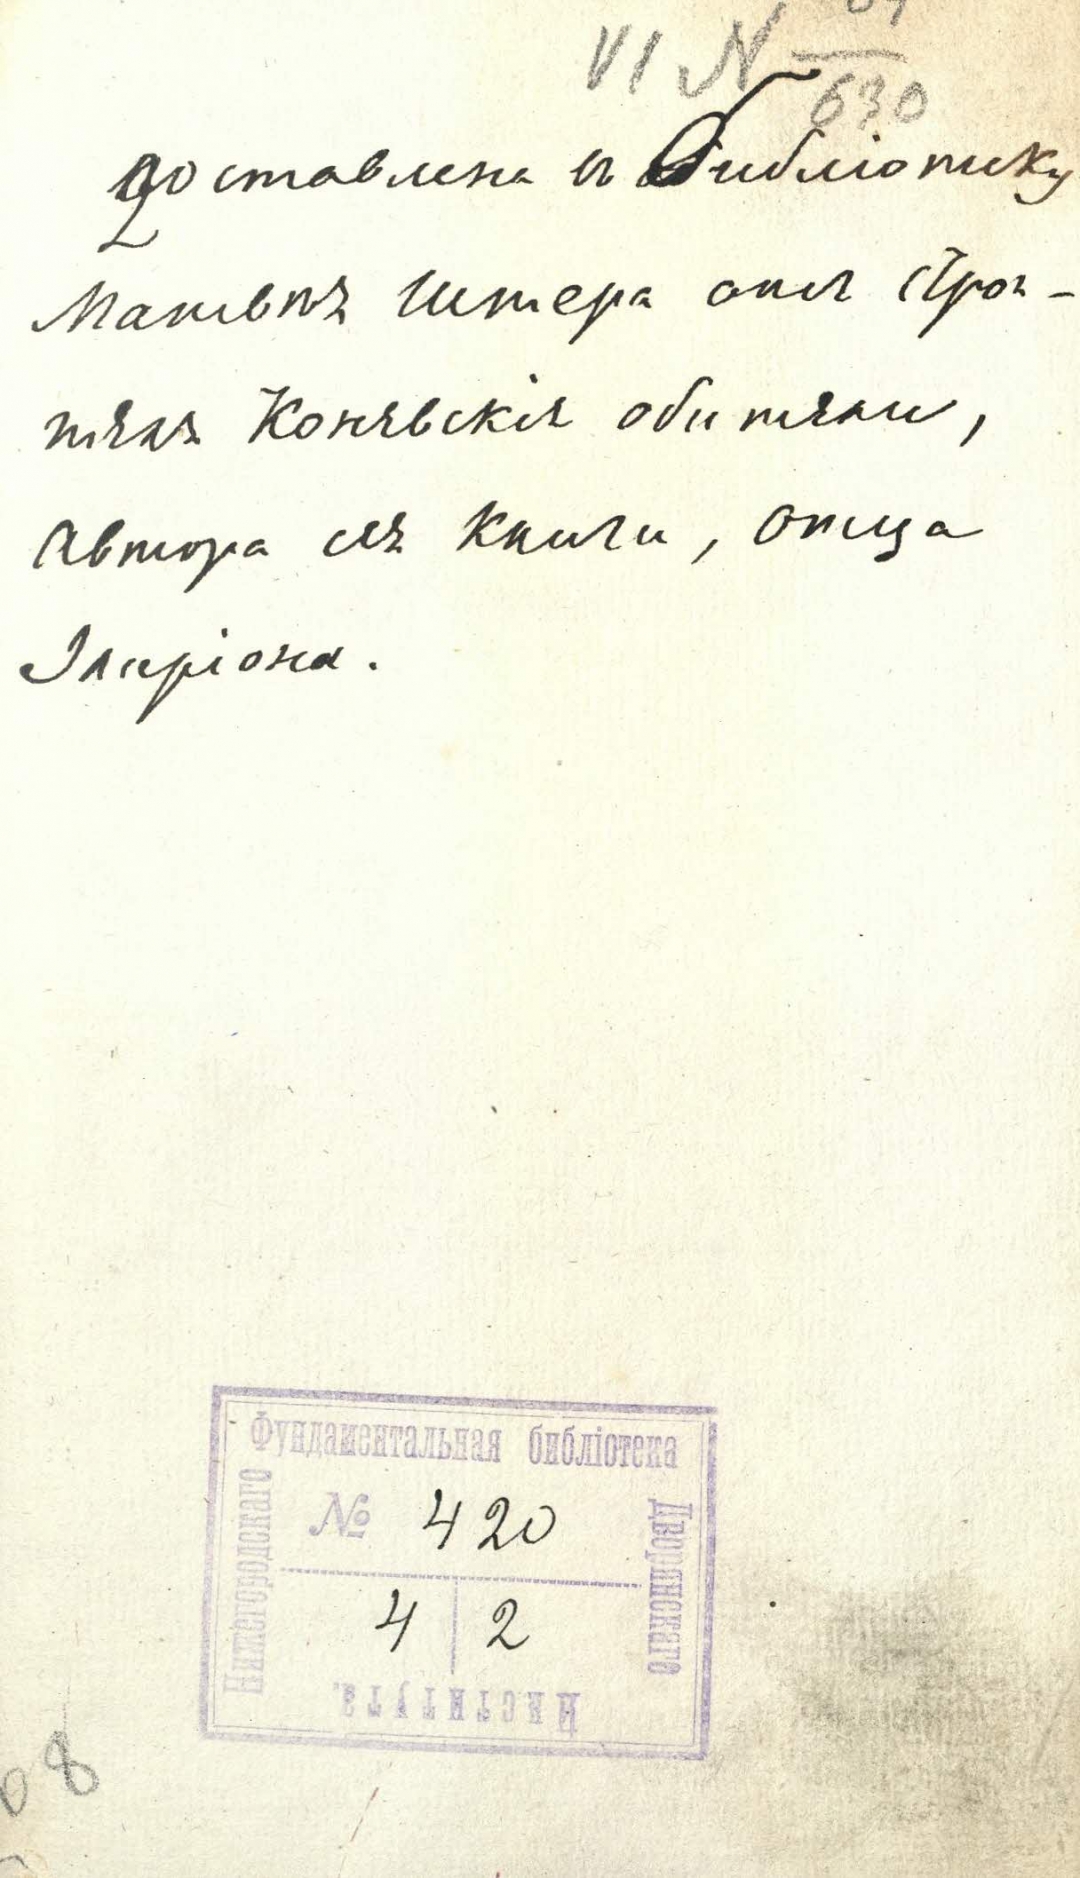 VI N 630
Доставлена въ Библіотеку
Матвѣя Штера отъ Строи-
теля Коневскія обители,
Автора сея книги, отца
Іларіона.
Фундаментальная библіотека
Нижегородскаго
Дворянскаго
Института.
№ 420
4 2
08